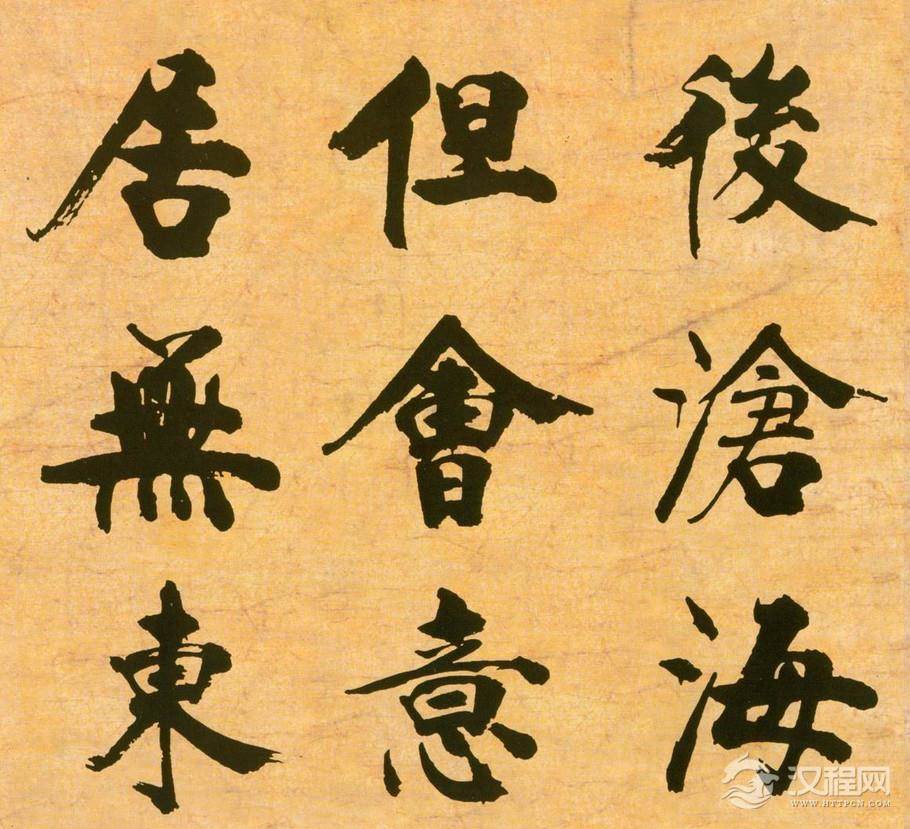 後滄海
但會意
居無東
汉程网
WWW.HTTPCN.COM